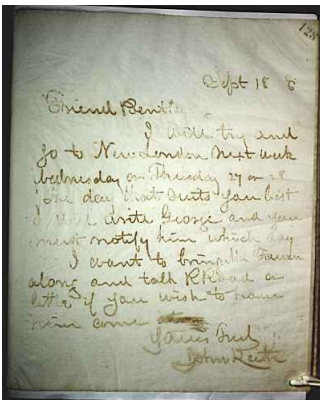 128
Sept 18 6
Friend Bently
I will try and
go to New London next week
Wednesday or Thursday 27 or 28
The day that suits you best
I will write George and you
must notify him which day
I want to bring Mr
along and talk RRoad a
little if you wish to have
him come
Yours Truly
John